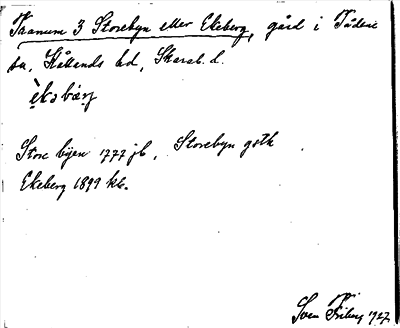 Thanum 3 Storebyn eller Ekeberg, gård i Täderö
sn, Kåkinds hd, Skarab. d.
èkəbærj
Store byen 1777 jb, Storebyn gstk
Ekeberg 1899 kb.
Sven Friberg 1927